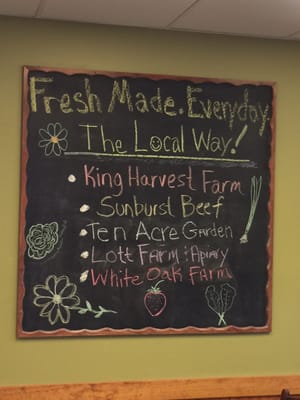 Fresh Made. Everyday.
The Local Way!
• King Harvest Farm
• Sunburst Beef
• Ten Acre Garden
• Lott Farm & Apiary
• White Oak Farm